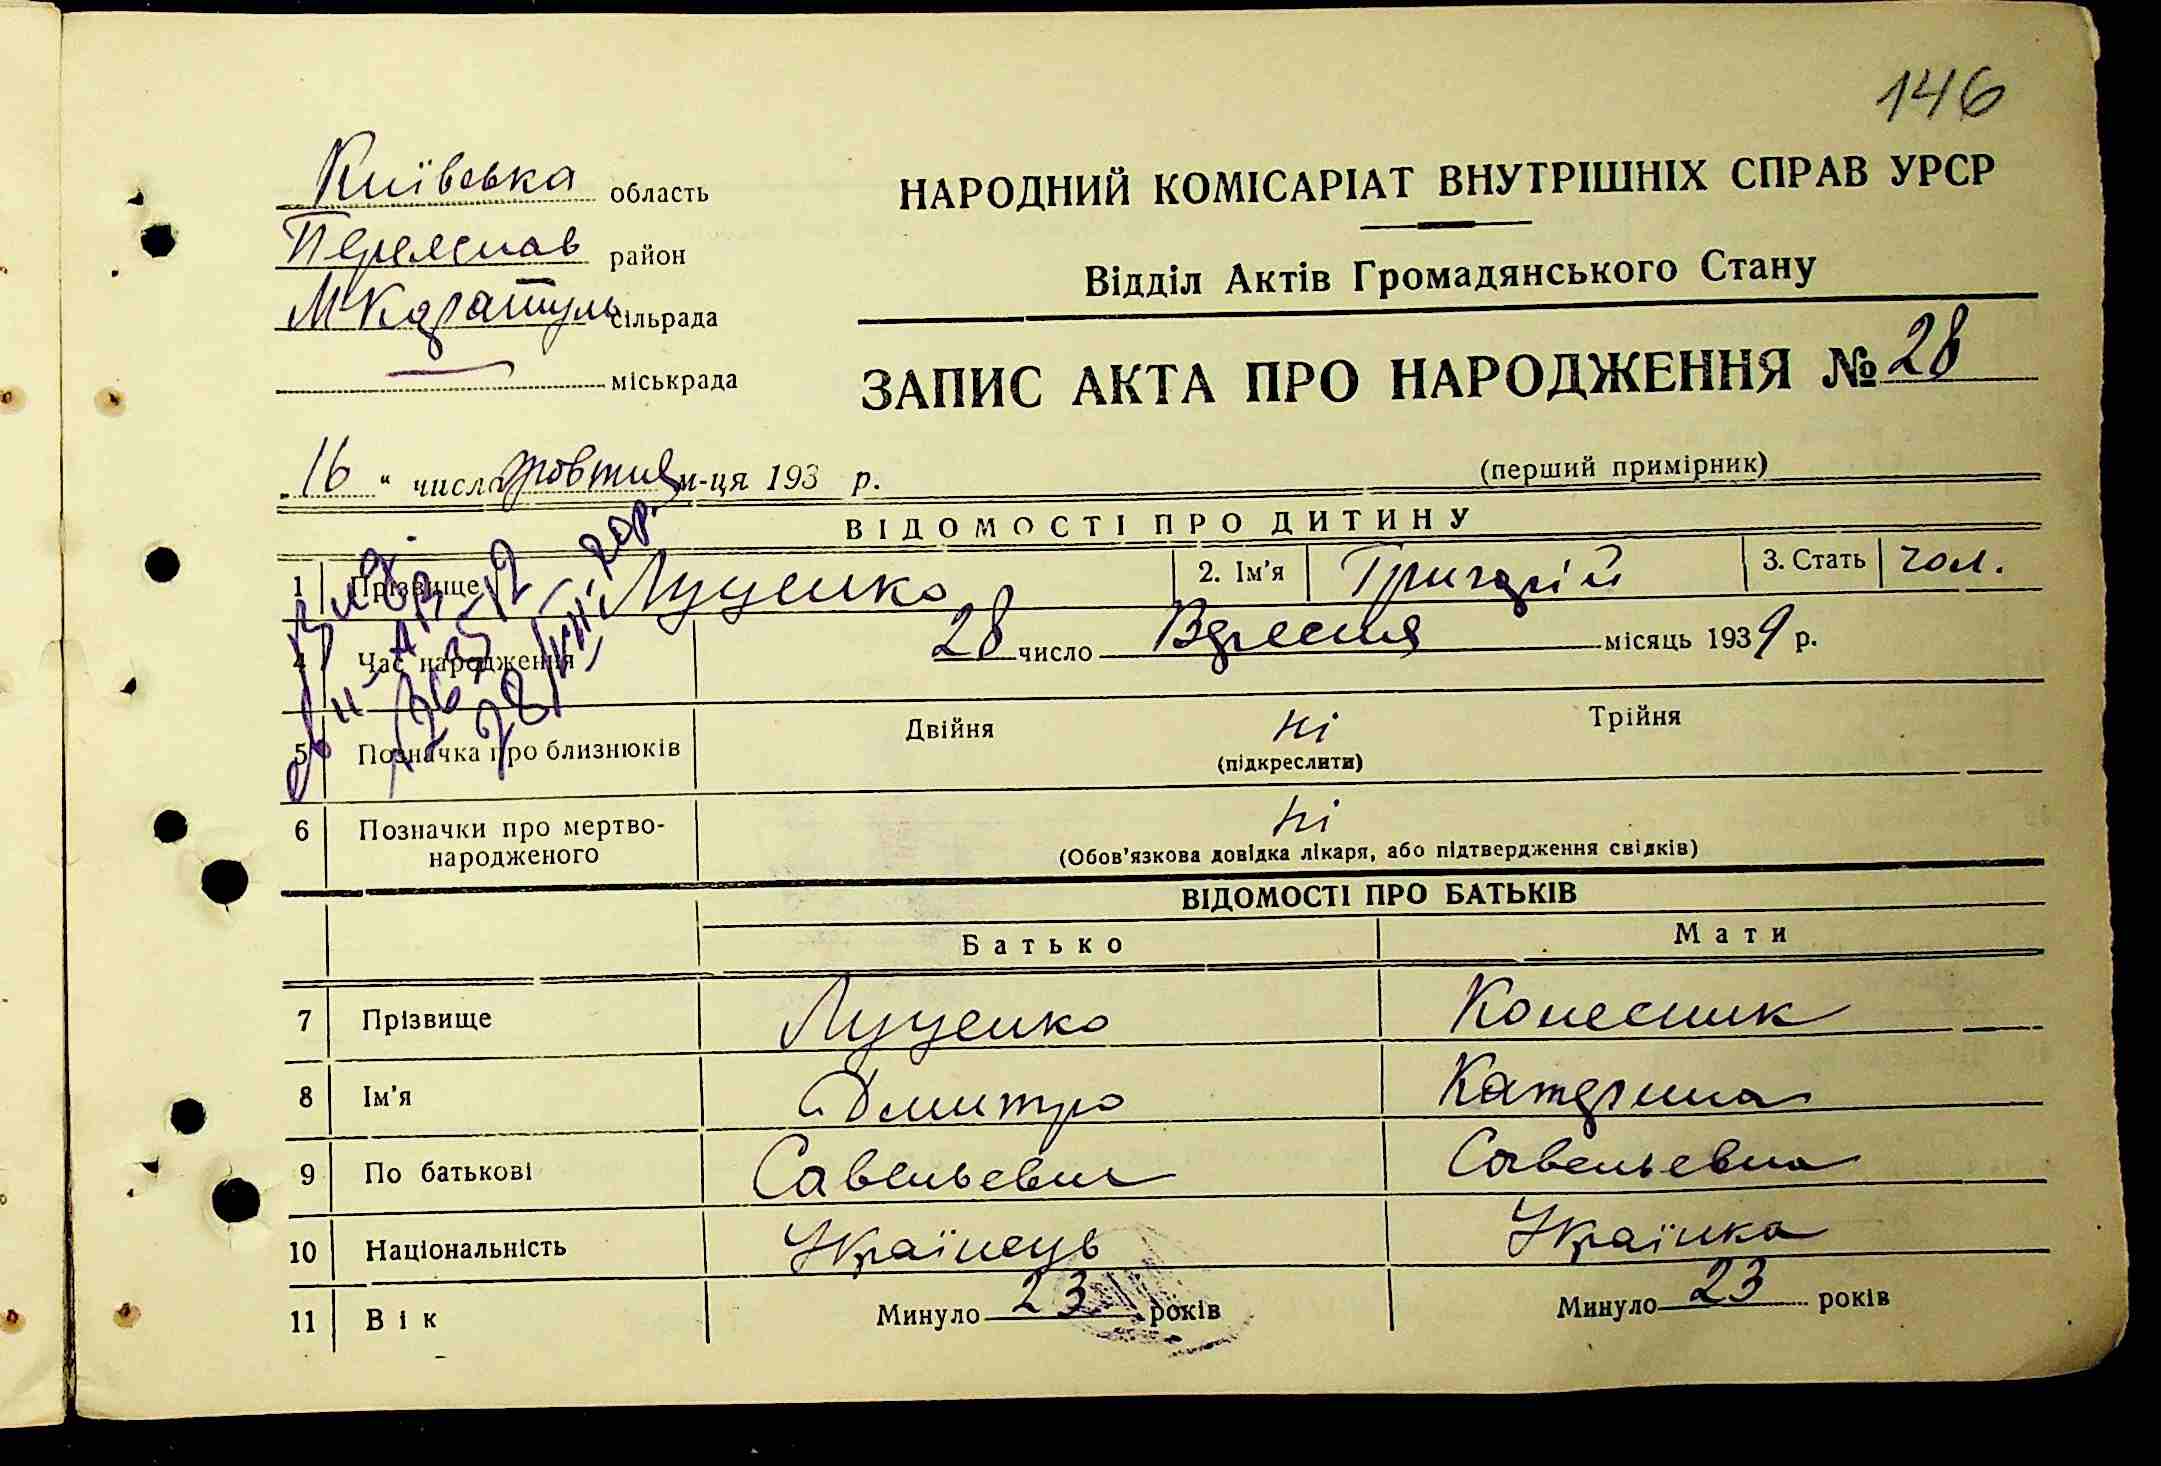 146
Київська область
Переяслав район
М Каратуль сільрада
міськрада
НАРОДНИЙ КОМІСАРІАТ ВНУТРІШНІХ СПРАВ УРСР
Відділ Актів Громадянського Стану
ЗАПИС АКТА ПРО НАРОДЖЕННЯ № 28
„16“ числа жовтня м-ця 193 р.
(перший примірник)
ВІДОМОСТІ ПРО ДИТИНУ
1 Прізвище Луценко 2. Ім'я Григорій 3. Стать чол.
4 Час народження 28 число Вересня місяць 1939 р.
5 Позначка про близнюків Двійня ні Трійня
(підкреслити)
6 Позначки про мертво-
народженого
ні
(Обов'язкова довідка лікаря, або підтвердження свідків)
ВІДОМОСТІ ПРО БАТЬКІВ
Батько Мати
7 Прізвище Луценко Колесник
8 Ім'я Дмитро Катерина
9 По батькові Савельевич Савельевна
10 Національність Українець Українка
11 Вік Минуло 23 років Минуло 23 років